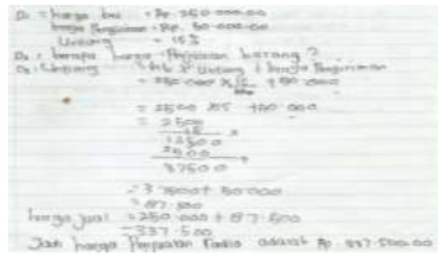 D1 = harga beli = Rp. 250.000.00
harga Pengiriman = Rp. 50.000.00
Untung = 15%
D2 = berapa harga Penjualan barang ?
D3 = Untung × Untung + harga Pengiriman
= 250.000 × 15 + 50.000
= 2500 × 15 + 50.000
= 2500
15 ×
12500
2500 +
37500
= 37500 + 50.000
= 87.500
harga jual = 250.000 + 87.500
= 337.500
Jadi harga Penjualan Radio adalah Rp. 337.500.00